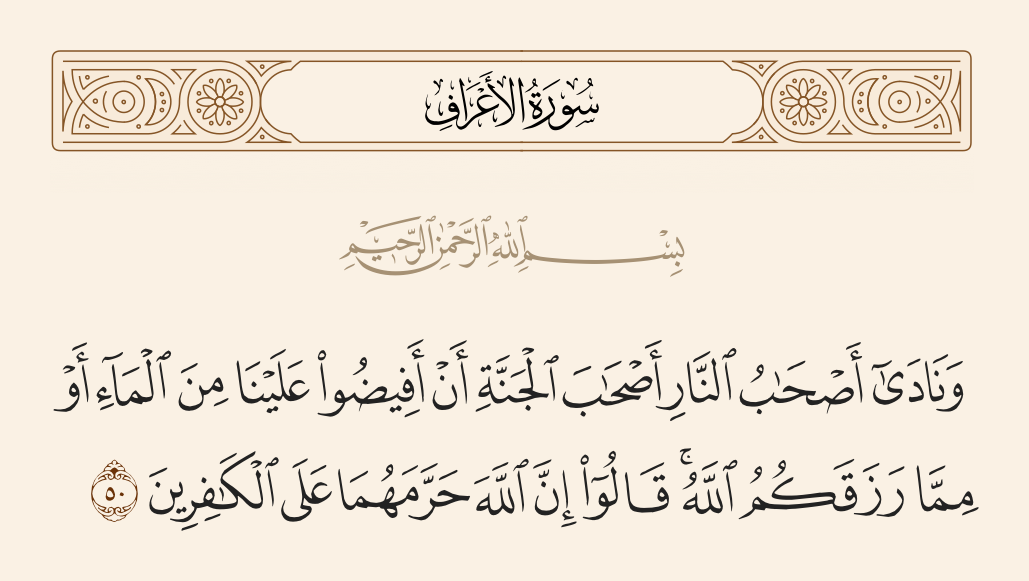 سُورَةُ الأَعْرَافِ
بِسْمِ ٱللَّهِ ٱلرَّحْمَٰنِ ٱلرَّحِيمِ
وَنَادَىٰٓ أَصْحَٰبُ ٱلنَّارِ أَصْحَٰبَ ٱلْجَنَّةِ أَنْ أَفِيضُوا۟ عَلَيْنَا مِنَ ٱلْمَآءِ أَوْ
مِمَّا رَزَقَكُمُ ٱللَّهُ ۚ قَالُوٓا۟ إِنَّ ٱللَّهَ حَرَّمَهُمَا عَلَى ٱلْكَٰفِرِينَ ٥٠